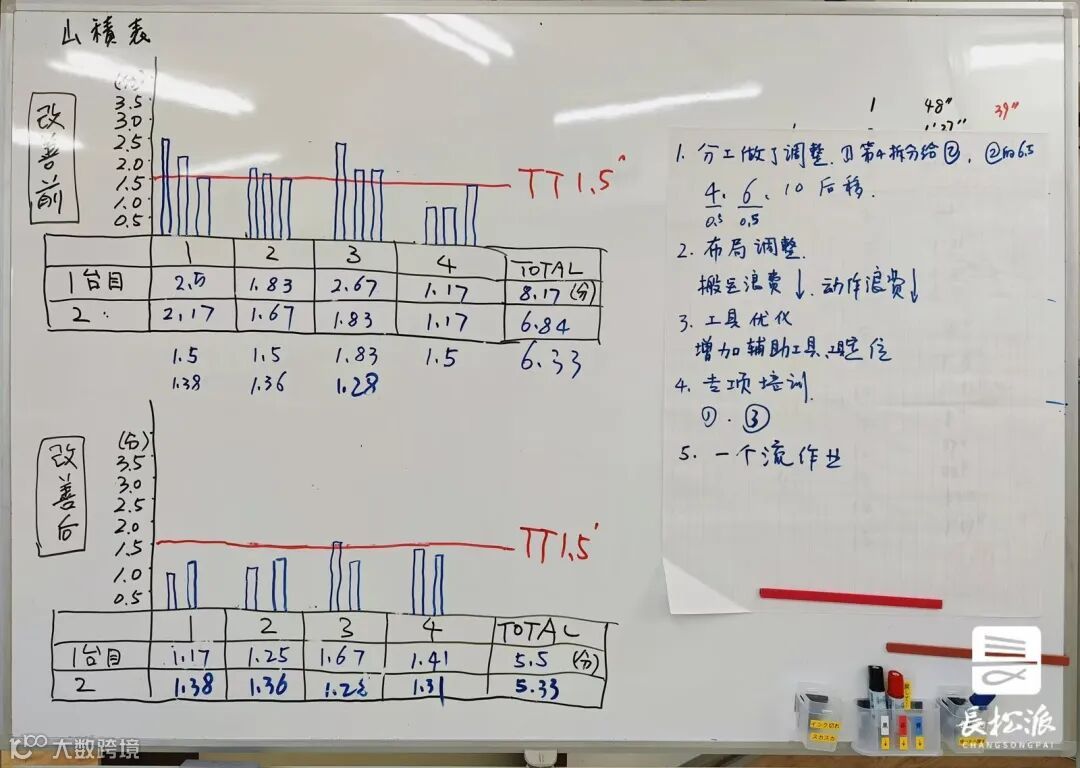 山積表
改善前
(分)
3.5
3.0
2.5
2.0
1.5
1.0
0.5
TT 1.5
1 2 3 4 TOTAL
1台目 2.5 1.83 2.67 1.17 8.17 (分)
2 2.17 1.67 1.83 1.17 6.84
1.5 1.5 1.83 1.5 6.33
1.38 1.36 1.28
改善后
(分)
3.5
3.0
2.5
2.0
1.5
1.0
0.5
TT 1.5'
1 2 3 4 TOTAL
1台目 1.17 1.25 1.67 1.41 5.5 (分)
2 1.38 1.36 1.28 1.31 5.33
1 48" 39"
1'37"
1. 分工做了调整. ①第4拆分给②, ②的6.5
4. 6. 10 后移.
0.5 0.5
2. 布局调整.
搬运浪费↓. 动作浪费↓
3. 工具优化
增加辅助工具、定位
4. 专项培训.
①. ③
5. 一个流作业
インク切れ
スカスカ
長松派
CHANGSONGPAI
大数跨境